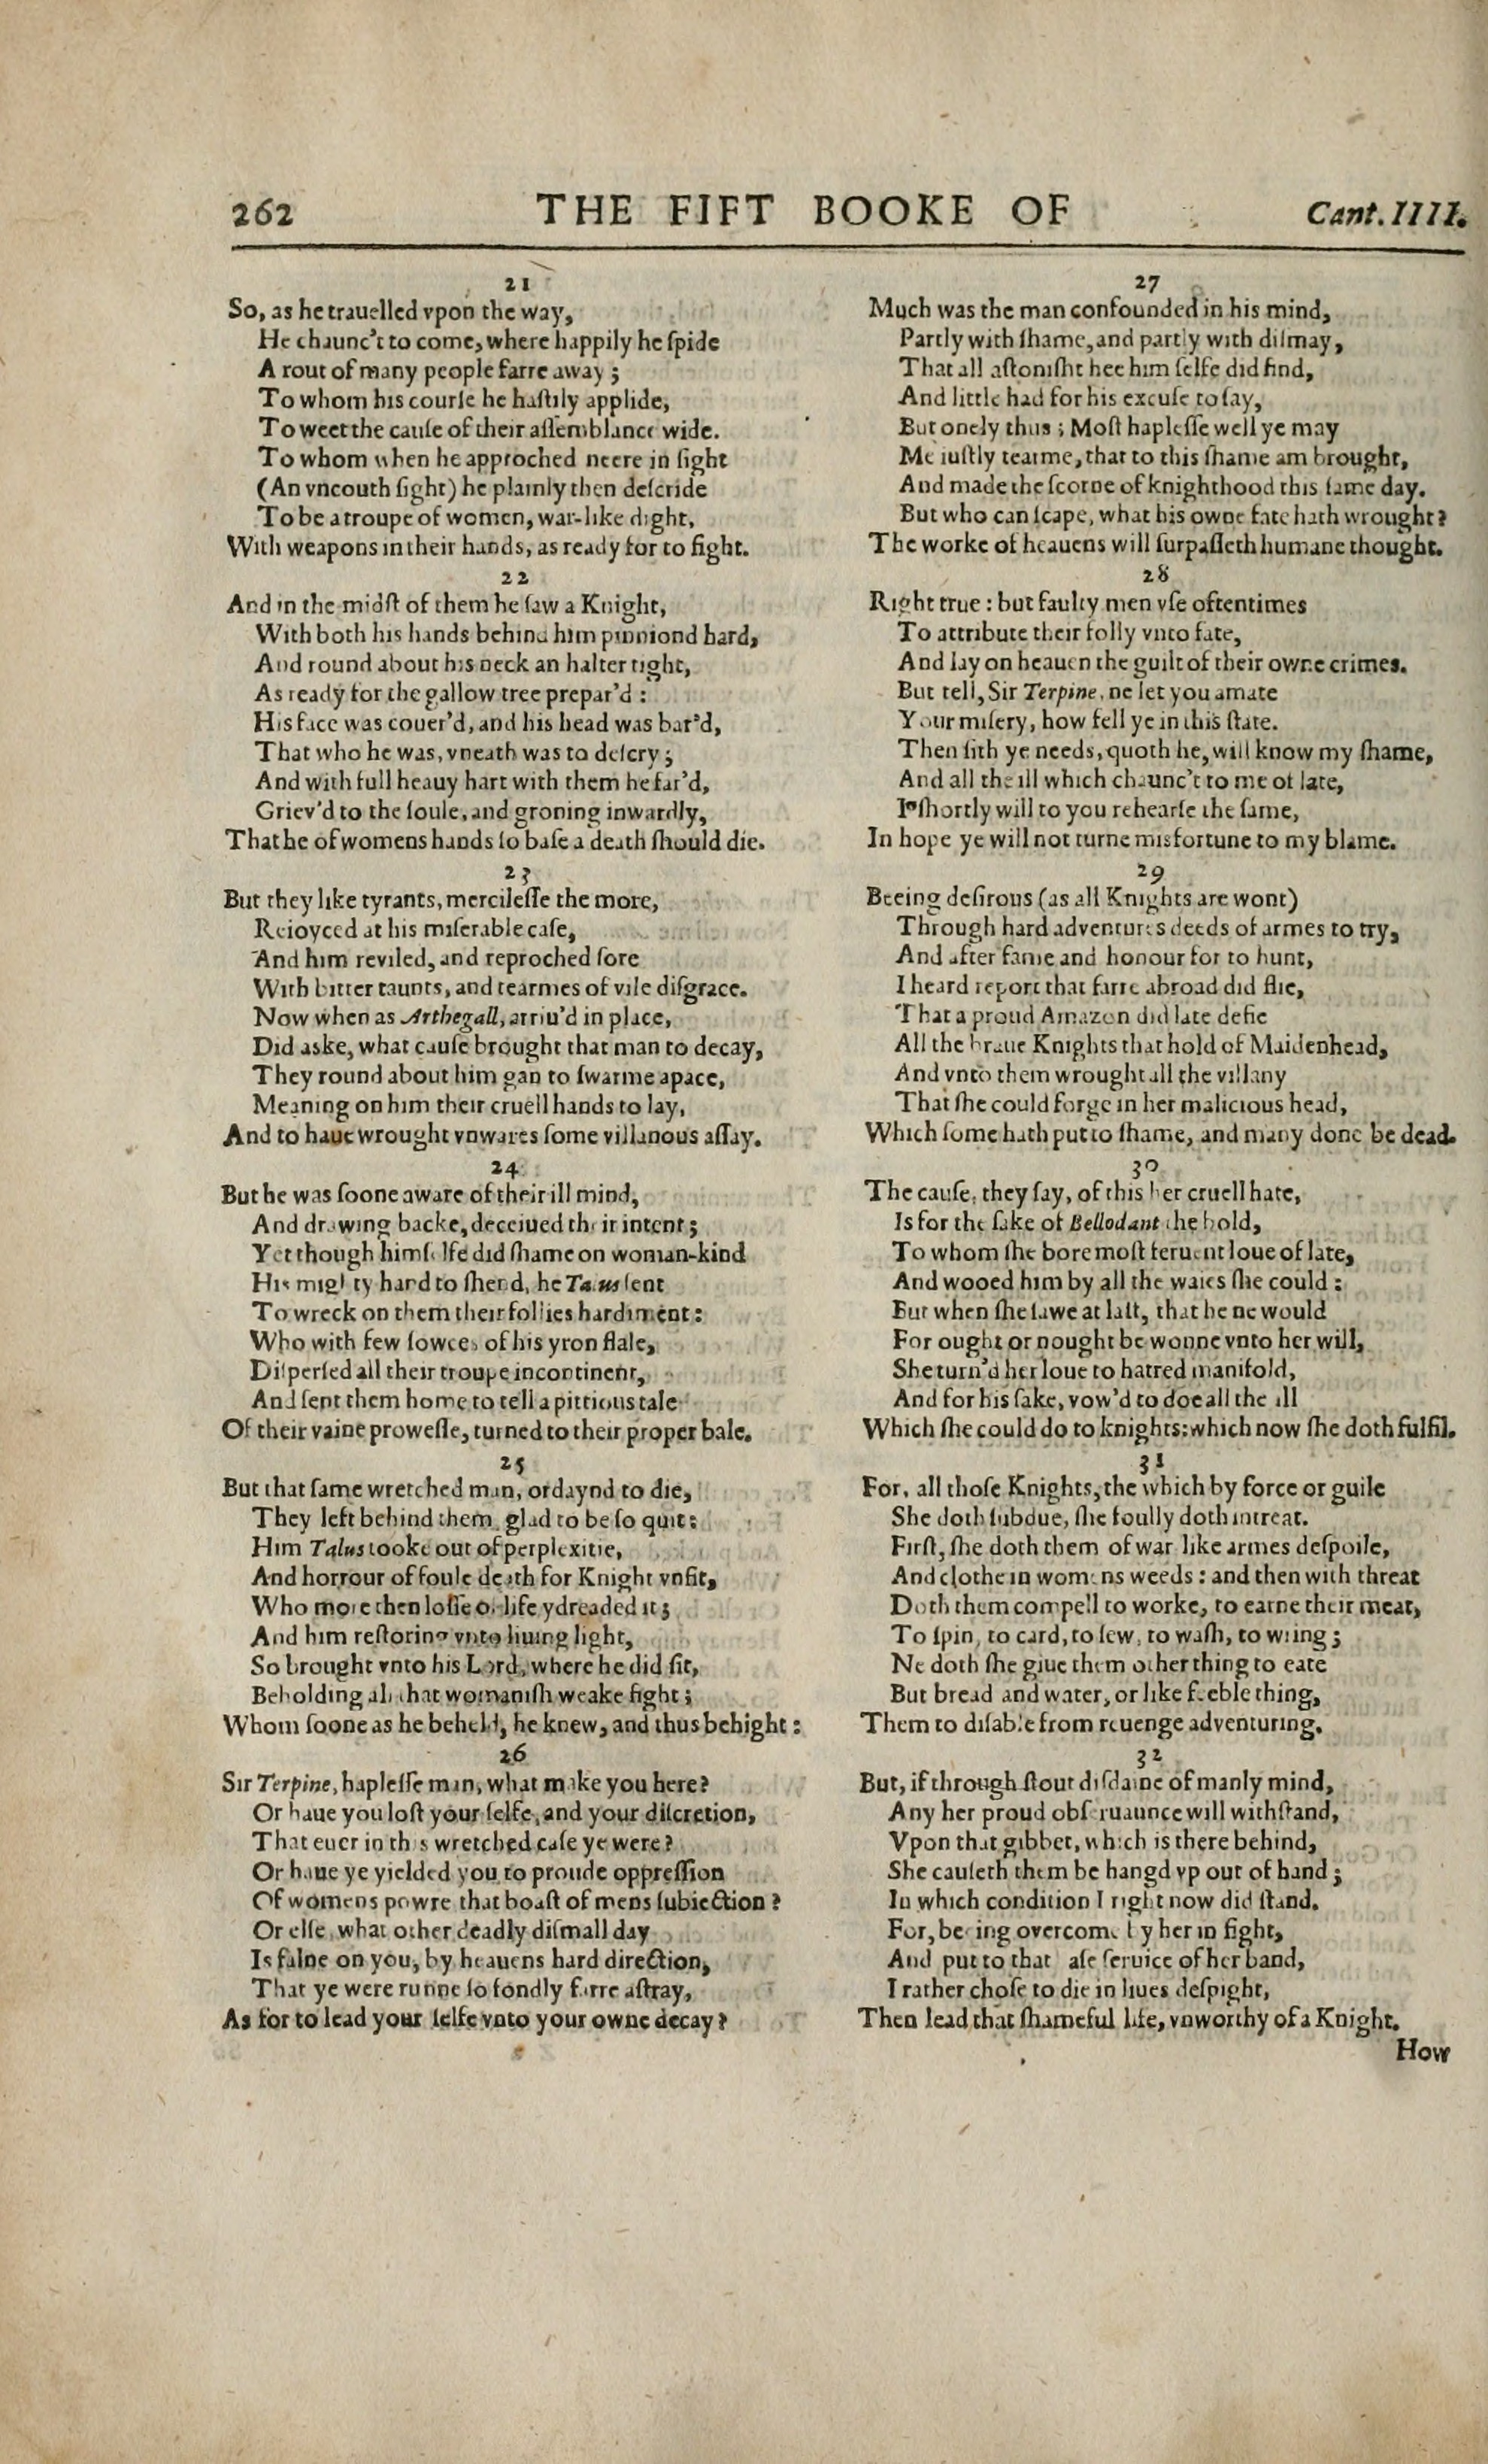 262 THE FIFT BOOKE OF Cant. IIII.
21
So, as he trauelled vpon the way,
He chaunc't to come, where happily he ſpide
A rout of many people farre away;
To whom his courſe he haſtily applide,
To weet the cauſe of their aſſemblance wide.
To whom when he approched neere in ſight
(An vncouth ſight) he plainly then deſcride
To be a troupe of women, war-like dight,
With weapons in their hands, as ready for to fight.
22
And in the midſt of them he ſaw a Knight,
With both his hands behind him pinniond hard,
And round about his neck an halter tight,
As ready for the gallow tree prepar'd:
His face was couer'd, and his head was bar'd,
That who he was, vneath was to deſcry;
And with full heauy hart with them he far'd,
Griev'd to the ſoule, and groning inwardly,
That he of womens hands ſo baſe a death ſhould die.
23
But they like tyrants, mercileſſe the more,
Reioyced at his miſerable caſe,
And him reviled, and reproched ſore
With bitter taunts, and tearmes of vile diſgrace.
Now when as Arthegall, arriu'd in place,
Did aske, what cauſe brought that man to decay,
They round about him gan to ſwarme apace,
Meaning on him their cruell hands to lay,
And to haue wrought vnwares ſome villanous aſſay.
24
But he was ſoone aware of their ill mind,
And drawing backe, deceiued their intent;
Yet though himſelfe did ſhame on woman-kind
His mighty hard to ſhend, he Talus ſent
To wreck on them their follies hardiment:
Who with few ſowces of his yron flale,
Diſperſed all their troupe incontinent,
And ſent them home to tell a pittious tale
Of their vaine proweſſe, turned to their proper bale.
25
But that ſame wretched man, ordaynd to die,
They left behind them, glad to be ſo quit:
Him Talus tooke out of perplexitie,
And horrour of foule death for Knight vnfit,
Who more then loſſe of life ydreaded it;
And him reſtoring vnto liuing light,
So brought vnto his Lord, where he did ſit,
Beholding all that womaniſh weake fight;
Whom ſoone as he beheld, he knew, and thus behight:
26
Sir Terpine, hapleſſe man, what make you here?
Or haue you loſt your ſelfe, and your diſcretion,
That euer in this wretched caſe ye were?
Or haue ye yielded you to proude oppreſſion
Of womens powre that boaſt of mens ſubiection?
Or elſe, what other deadly diſmall day
Is falne on you, by heauens hard direction,
That ye were runne ſo fondly farre aſtray,
As for to lead your ſelfe vnto your owne decay?
27
Much was the man confounded in his mind,
Partly with ſhame, and partly with diſmay,
That all aſtoniſht hee him ſelfe did find,
And little had for his excuſe to ſay,
But onely thus; Moſt hapleſſe well ye may
Me iuſtly tearme, that to this ſhame am brought,
And made the ſcorne of knighthood this ſame day.
But who can ſcape, what his owne fate hath wrought?
The worke of heauens will ſurpaſſeth humane thought.
28
Right true: but faulty men vſe oftentimes
To attribute their folly vnto fate,
And lay on heauen the guilt of their owne crimes.
But tell, Sir Terpine, ne let you amate
Your miſery, how fell ye in this ſtate.
Then ſith ye needs, quoth he, will know my ſhame,
And all the ill which chaunc't to me of late,
I ſhortly will to you rehearſe the ſame,
In hope ye will not turne misfortune to my blame.
29
Beeing deſirous (as all Knights are wont)
Through hard adventures deeds of armes to try,
And after fame and honour for to hunt,
I heard report that farre abroad did flie,
That a proud Amazon did late defie
All the braue Knights that hold of Maidenhead,
And vnto them wrought all the villany
That ſhe could forge in her malicious head,
Which ſome hath put to ſhame, and many done be dead.
30
The cauſe, they ſay, of this her cruell hate,
Is for the ſake of Bellodant the bold,
To whom ſhe bore moſt feruent loue of late,
And wooed him by all the waies ſhe could:
But when ſhe ſawe at laſt, that he ne would
For ought or nought be wonne vnto her will,
She turn'd her loue to hatred manifold,
And for his ſake, vow'd to doe all the ill
Which ſhe could do to knights; which now ſhe doth fulfil.
31
For, all thoſe Knights, the which by force or guile
She doth ſubdue, ſhe foully doth intreat.
Firſt, ſhe doth them of war like armes deſpoile,
And clothe in womens weeds: and then with threat
Doth them compell to worke, to earne their meat,
To ſpin, to card, to ſew, to waſh, to wring;
Ne doth ſhe giue them other thing to eate
But bread and water, or like feeble thing,
Them to diſable from reuenge adventuring.
32
But, if through ſtout diſdaine of manly mind,
Any her proud obſeruaunce will withſtand,
Vpon that gibbet, which is there behind,
She cauſeth them be hangd vp out of hand;
In which condition I right now did ſtand.
For, being overcome by her in fight,
And put to that baſe ſeruice of her band,
I rather choſe to die in liues deſpight,
Then lead that ſhameful life, vnworthy of a Knight.
How